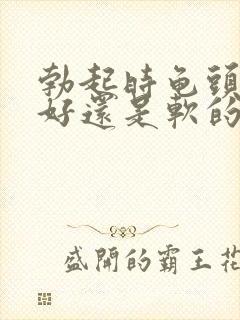 勃起時龟頭
好還是軟的
盛開的霸王花